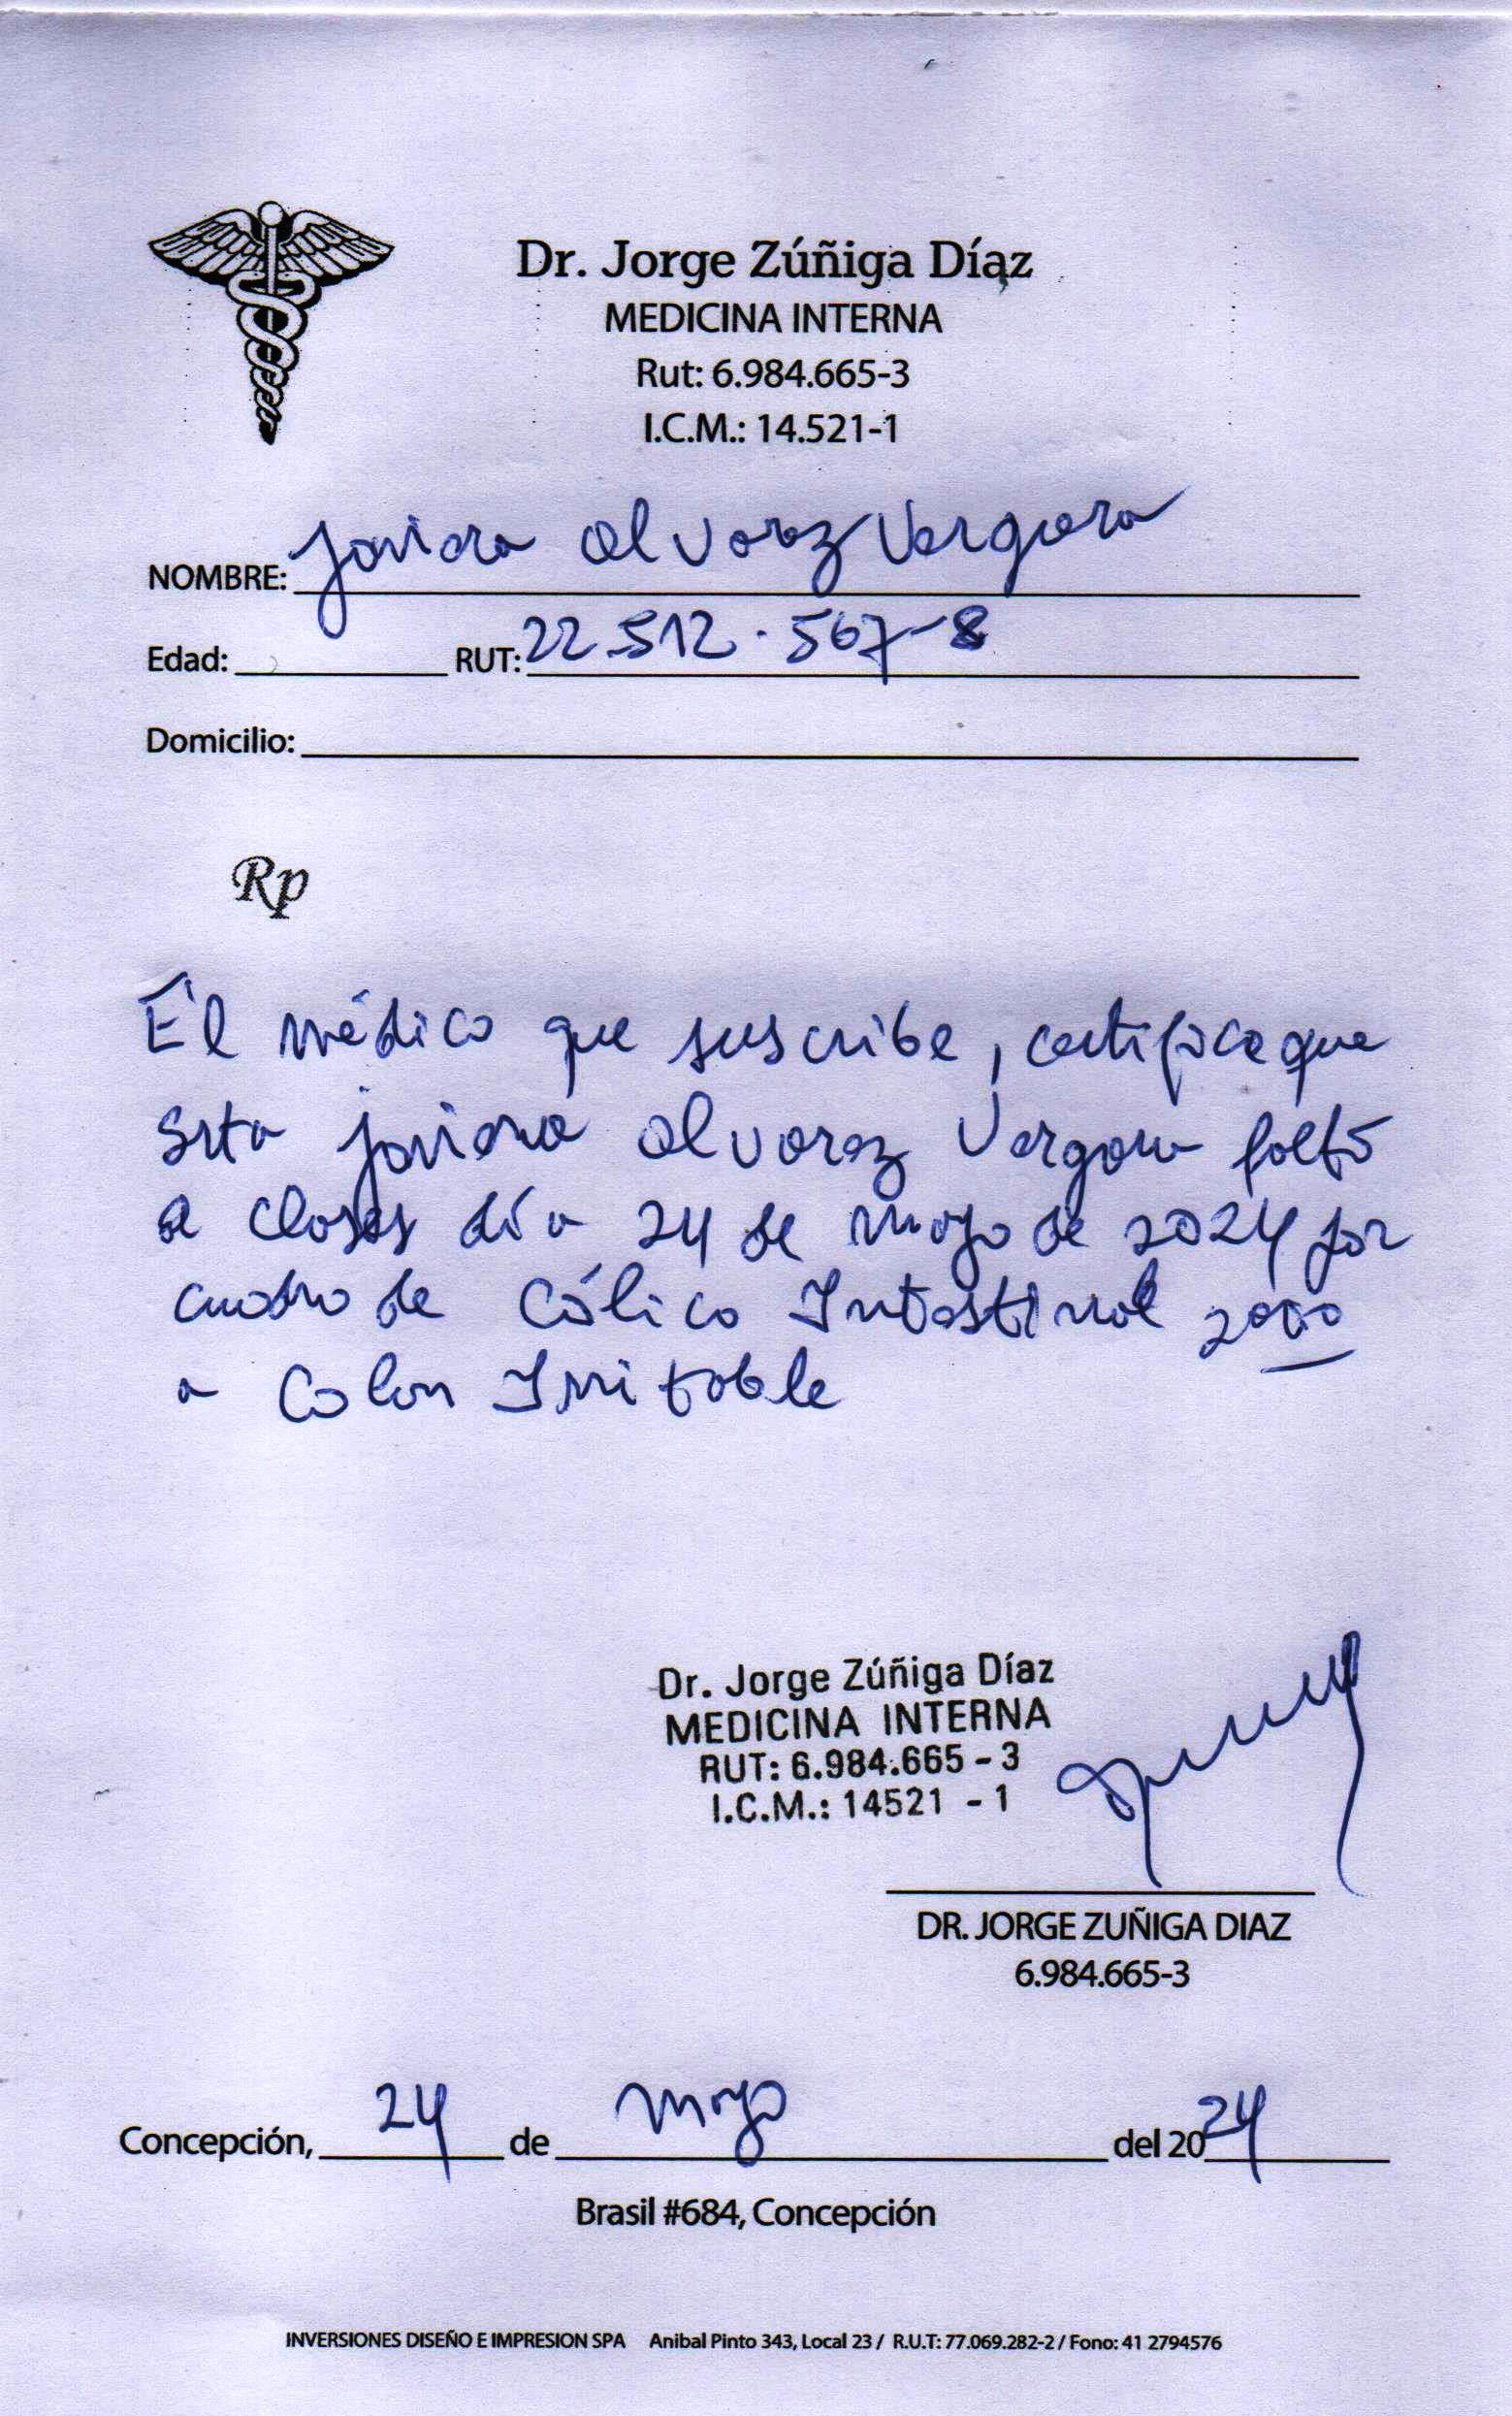 Dr. Jorge Zúñiga Díaz
MEDICINA INTERNA
Rut: 6.984.665-3
I.C.M.: 14.521-1
NOMBRE: Javiera Alvarez Vergara
Edad: RUT: 22.512.567-8
Domicilio:
Rp
El médico que suscribe, certifica que
Srta Javiera Alvarez Vergara faltó
a clases día 24 de mayo de 2024 por
cuadro de Cólico Intestinal 2ario
a Colon Irritable
Dr. Jorge Zúñiga Díaz
MEDICINA INTERNA
RUT: 6.984.665 - 3
I.C.M.: 14521 - 1
DR. JORGE ZUÑIGA DIAZ
6.984.665-3
Concepción, 24 de mayo del 2024
Brasil #684, Concepción
INVERSIONES DISEÑO E IMPRESION SPA Anibal Pinto 343, Local 23 / R.U.T: 77.069.282-2 / Fono: 41 2794576